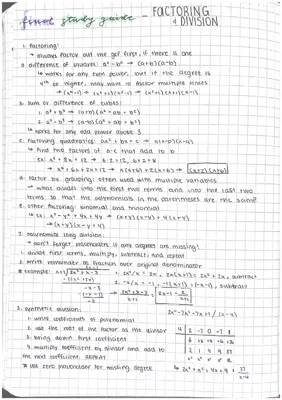 final study guide - FACTORING & DIVISION
1. factoring!
→ always factor out the gcf first, if there is one
a. difference of squares: a² - b² → (a+b)(a-b)
↳ works for any two power, but if the degree is
4th or higher, may have to factor multiple times
→ (x⁴-1) → (x²+1)(x²-1) → (x²+1)(x+1)(x-1)
b. sum or difference of cubes!
1. a³+b³ → (a+b)(a²-ab+b²)
2. a³-b³ → (a-b)(a²+ab+b²)
↳ works for any odd power above 3
c. factoring quadratics: ax²+bx+c →
↳ find two factors of a·c that add to b
ex: x²+8x+12 → 6·2=12, 6+2=8
→ x²+6x+2x+12 → x(x+6)+2(x+6) → (x+2)(x+6)
d. factor by grouping: often used with multiple variables
↳ what divides into the first two terms and into the last two
terms so that the polynomials in the parentheses are the same?
e. other factoring: binomial and trinomial
↳ ex: x²-y²+4x+4y → (x+y)(x-y)+4(x+y)
→ (x+y)(x-y+4)
2. polynomial long division:
→ don't forget placeholders if any degrees are missing!
1. divide first terms, multiply, subtract and repeat
2. write remainder as fraction over original denominator
* example:
2. synthetic division:
1. write coefficients of polynomial
2. use the root of the factor as the divisor
3. bring down first coefficient
4. multiply coefficient by divisor and add to
the next coefficient. REPEAT
* use zero placeholder for missing degree